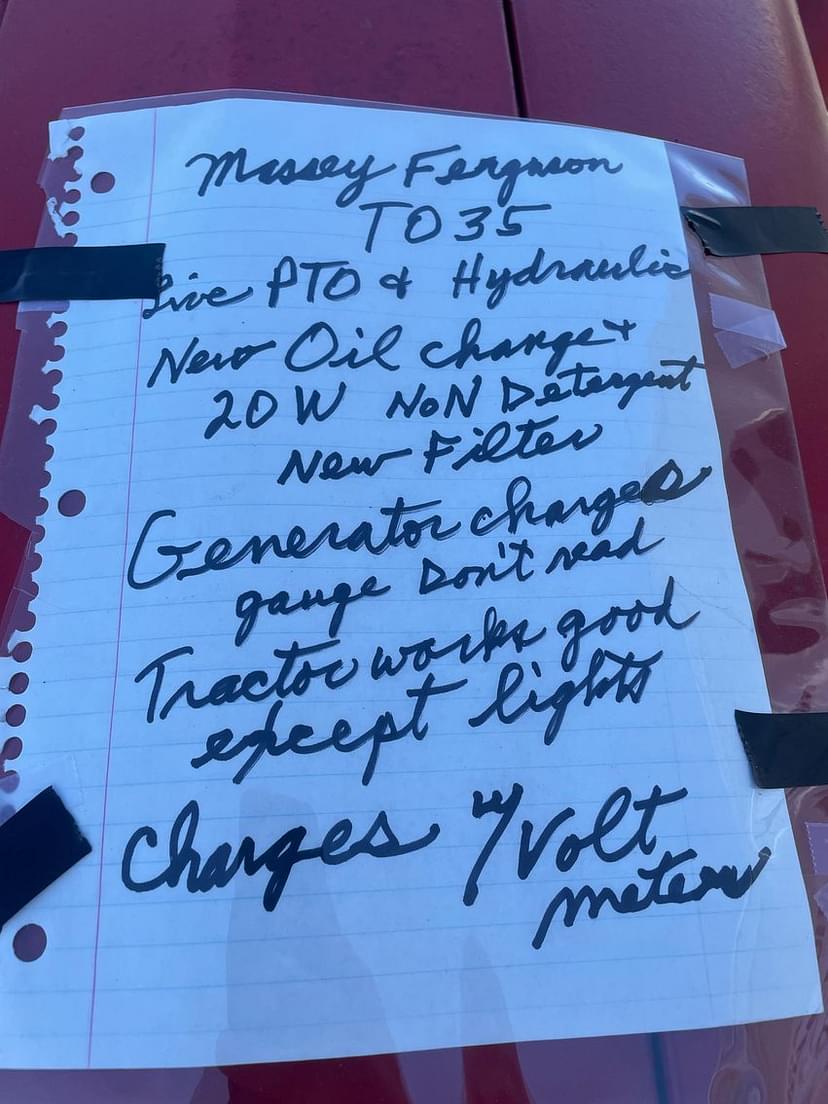 Massey Ferguson
TO35
Live PTO & Hydraulic
New Oil change +
20W NoN Detergent
New Filter
Generator charges
gauge Don't read
Tractor works good
except lights
Charges w/Volt
meter